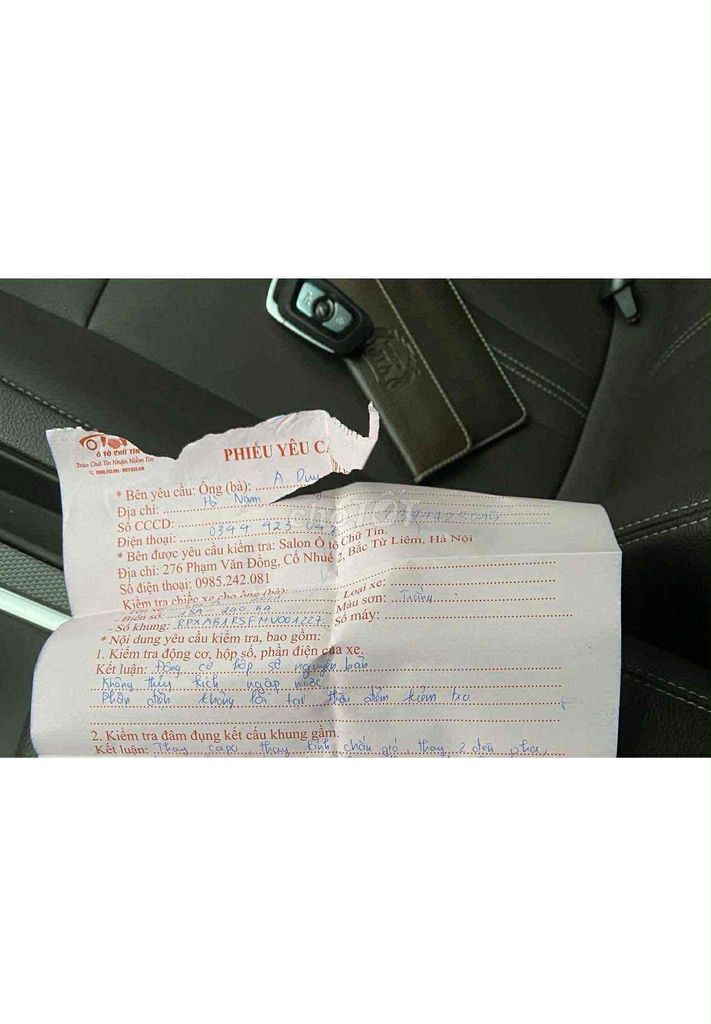 Ô TÔ CHỮ TÍN
Trao Chữ Tín Nhận Niềm Tin
PHIẾU YÊU C
* Bên yêu cầu: Ông (bà): A Duy
Địa chỉ: Hà Nam
Số CCCD:
Điện thoại: 0344 423
* Bên được yêu cầu kiểm tra: Salon Ô tô Chữ Tín.
Địa chỉ: 276 Phạm Văn Đồng, Cổ Nhuế 2, Bắc Từ Liêm, Hà Nội
Số điện thoại: 0985.242.081
Kiểm tra chiếc xe cho ông (bà):
Loại xe:
- Biển số: Màu sơn: Trắng
- Số khung: Số máy:
* Nội dung yêu cầu kiểm tra, bao gồm:
1. Kiểm tra động cơ, hộp số, phần điện của xe.
Kết luận: Động cơ hộp số nguyên bản
Không thủy kích ngập nước
Phần điện không lỗi tại thời điểm kiểm tra
2. Kiểm tra đâm đụng kết cấu khung gầm.
Kết luận: Thay capo, thay kính chắn gió, thay 2 đèn pha,